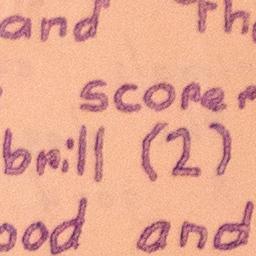 and Th
scorer
brill (2)
ood and